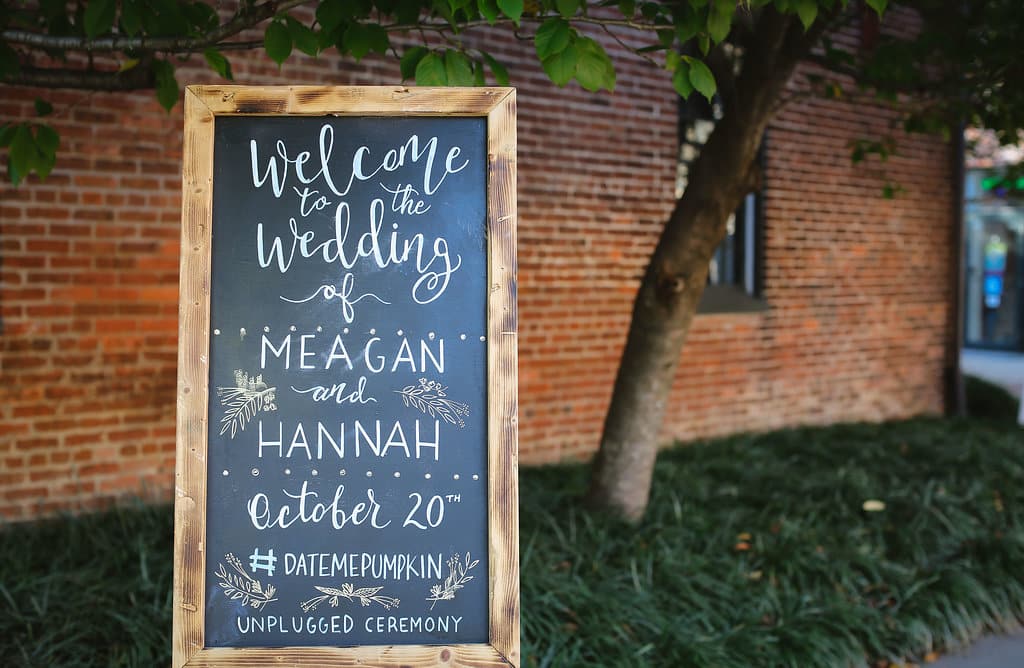 Welcome
to the
Wedding
of
MEAGAN
and
HANNAH
October 20TH
#DATEMEPUMPKIN
UNPLUGGED CEREMONY